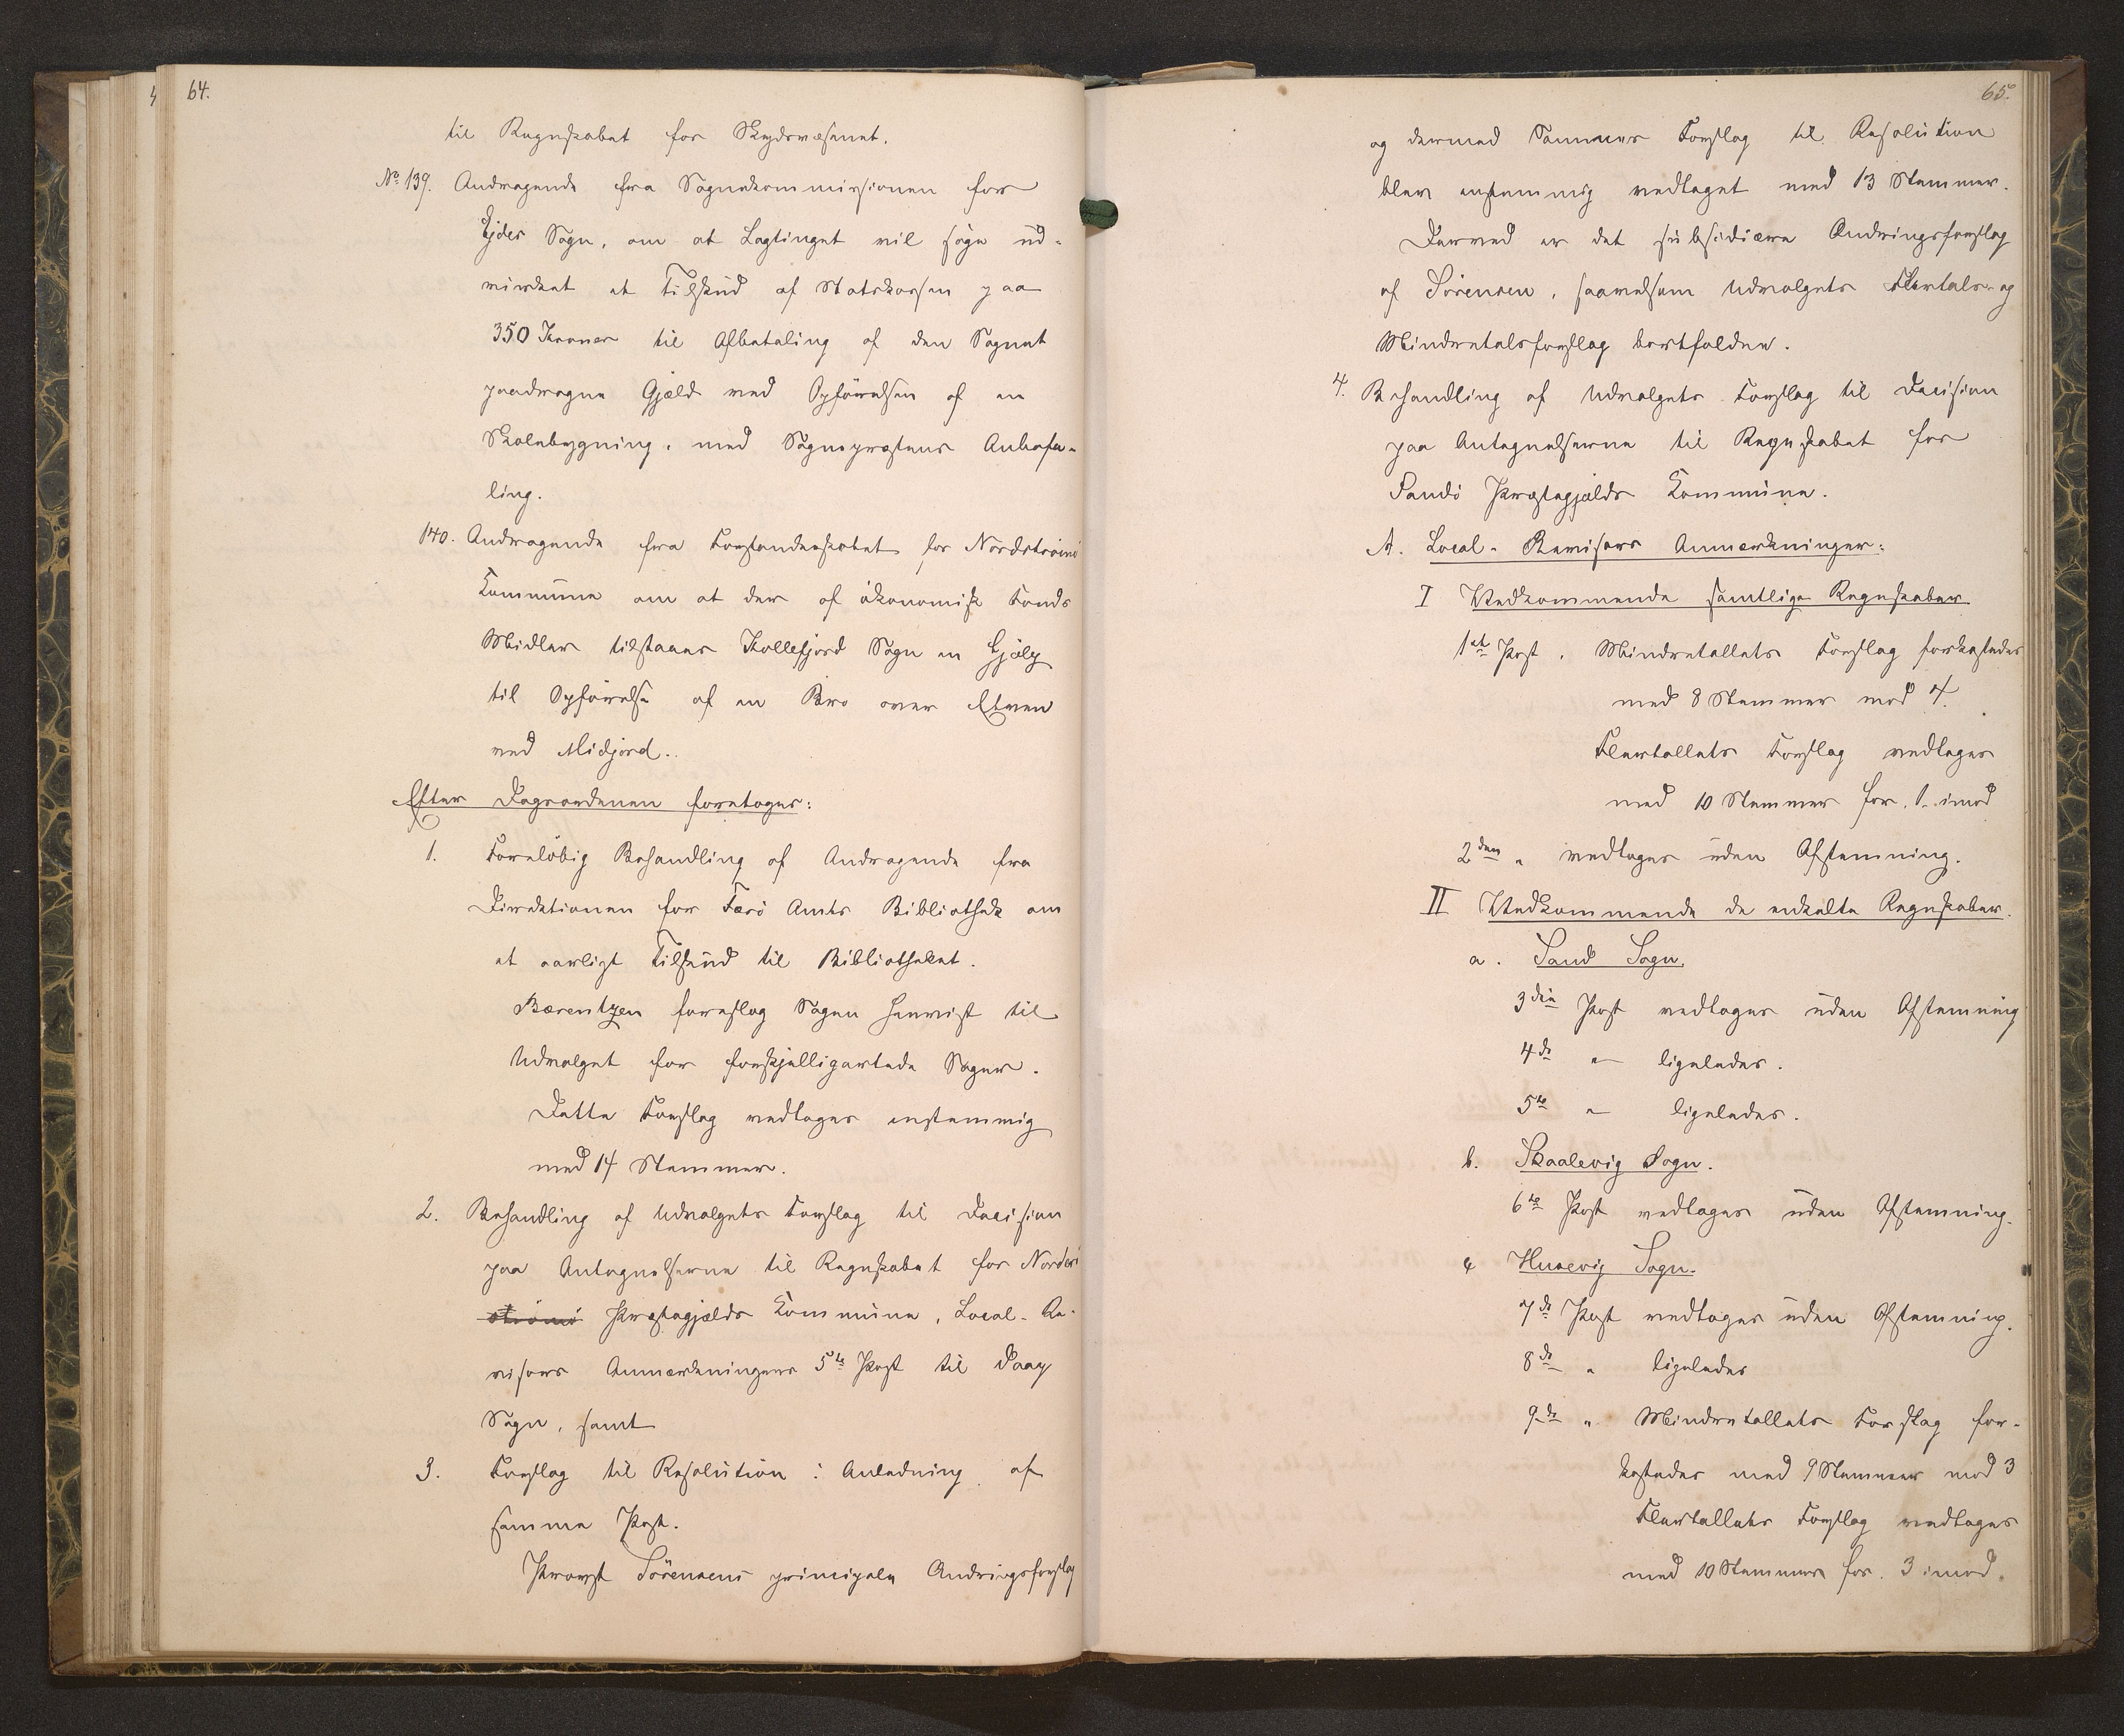 64.
til Regnskabet for Skydsvæsenet.
No. 139. Andragende fra Sognekommissionen for
Ejde Sogn, om at Lagtinget vil søge ud-
virket et Tilskud af Statskassen paa
350 Kroner til Afbetaling af den Sognet
paadragne Gjæld ved Opførelsen af en
Skolebygning, med Sognepræstens Anbefa-
ling.
140. Andragende fra Forstanderskabet for Nordstrømø
Kommune om at der af økonomisk Fonds
Midler tilstaaes Kollefjord Sogn en Hjælp
til Opførelse af en Bro over Elven
ved Midjord.
Efter Dagsordenen foretoges:
1. Foreløbig Behandling af Andragende fra
Direktionen for Færø Amts Bibliothek om
et aarligt Tilskud til Bibliotheket.
Bærentzen foreslog Sagen henvist til
Udvalget for forskjelligartede Sager.
Dette Forslag vedtoges enstemmig
med 14 Stemmer.
2. Behandling af Udvalgets Forslag til Decision
paa Antegnelserne til Regnskabet for Norderø
strømø Præstegjælds Kommune, Local-Re-
visors Anmærkningers 5te Post til Vaag
Sogn, samt
3. Forslag til Resolution i Anledning af
samme Post.
Provst Sörensens principale Ændringsforslag
65.
og dermed Sammes Forslag til Resolution
blev enstemmig vedtaget med 13 Stemmer.
Derved er det subsidiære Ændringsforslag
af Sörensen, saavelsom Udvalgets Flertals- og
Mindretalsforslag bortfalden.
4. Behandling af Udvalgets Forslag til Decision
paa Antegnelserne til Regnskabet for
Sandø Præstegjælds Kommune.
A. Local-Revisors Anmærkninger:
I Vedkommende samtlige Regnskaber.
1ste Post. Mindretallets Forslag forkastedes
med 8 Stemmer mod 4.
Flertallets Forslag vedtoges
med 10 Stemmer for, 1 imod
2den " vedtoges uden Afstemning.
II Vedkommende de enkelte Regnskaber.
a. Sand Sogn.
3die Post vedtoges uden Afstemning
4de " ligeledes.
5te " ligeledes.
b. Skaalevig Sogn.
6te Post vedtoges uden Afstemning.
c Husevig Sogn.
7de Post vedtoges uden Afstemning.
8de " ligeledes
9de " Mindretallets Forslag for-
kastedes med 9 Stemmer mod 3
Flertallets Forslag vedtoges
med 10 Stemmer for. 3 imod.